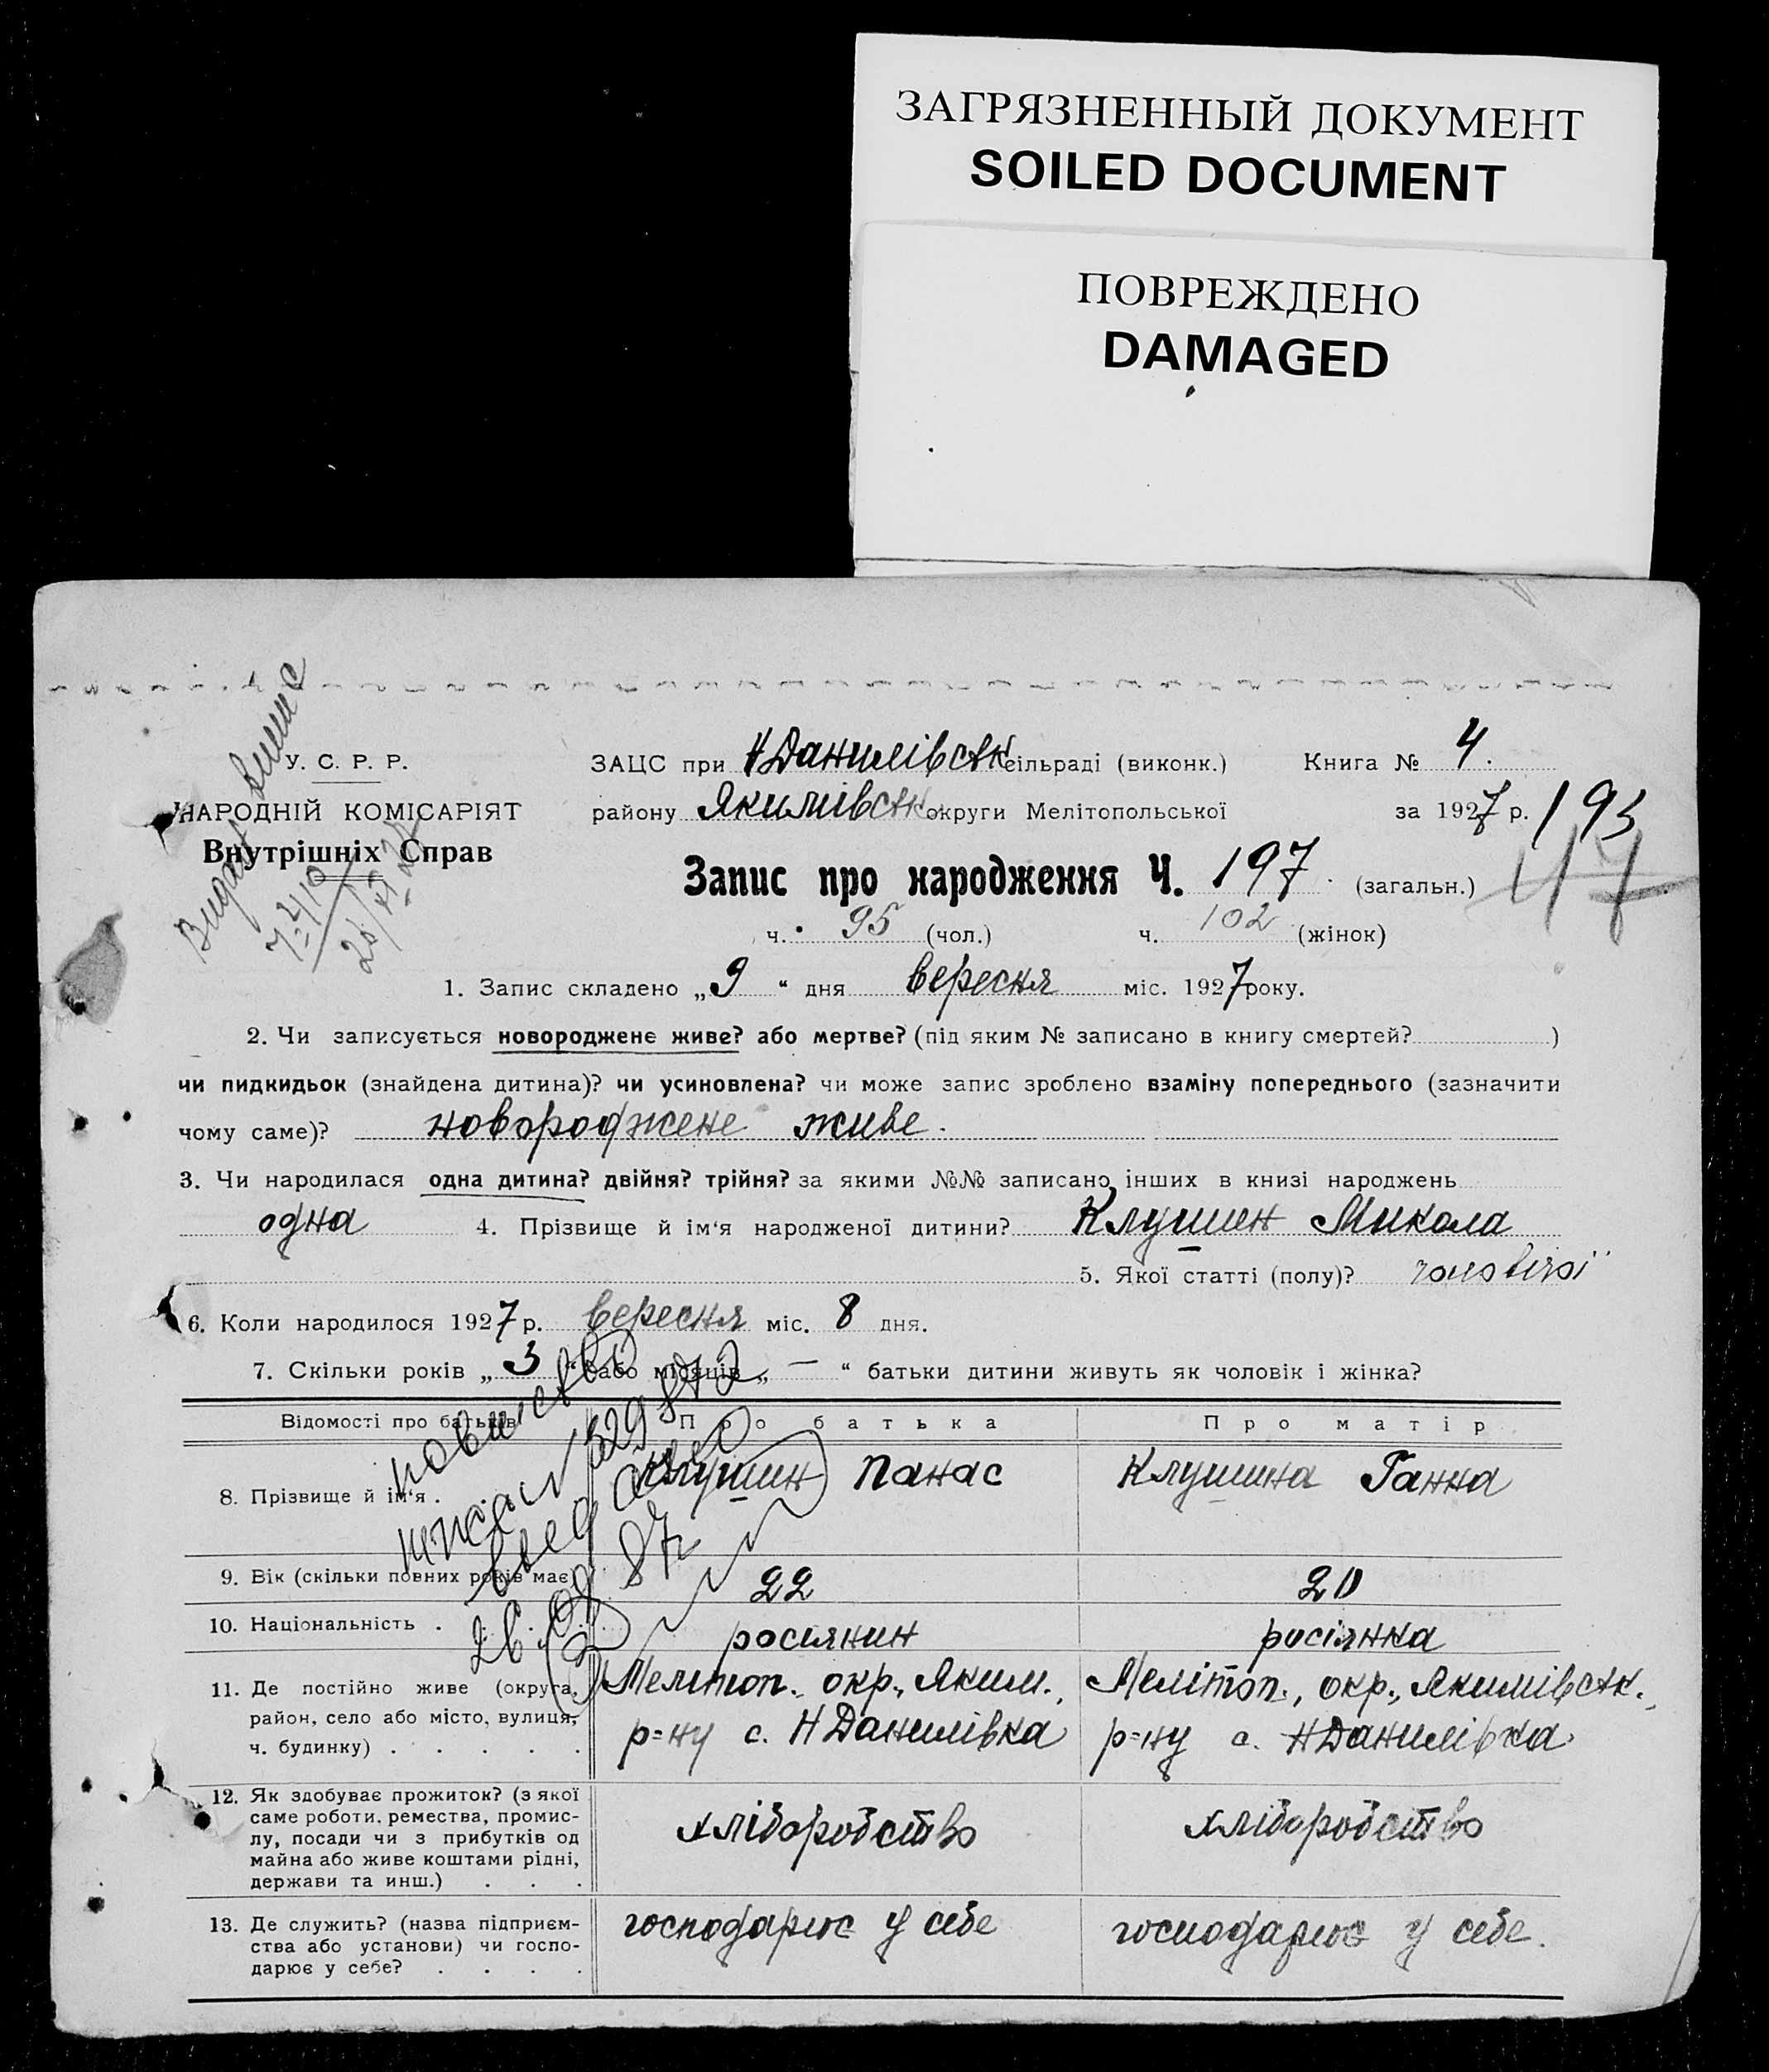 ЗАГРЯЗНЕННЫЙ ДОКУМЕНТ
SOILED DOCUMENT
ПОВРЕЖДЕНО
DAMAGED
У. С. Р. Р.
НАРОДНІЙ КОМІСАРІЯТ
Внутрішніх Справ
ЗАЦС при Н Данилівськ сільраді (виконк.) Книга № 4.
району Якимівськ округи Мелітопольської за 1927 р. 193
Запис про народження Ч. 197. (загальн.) 47
ч. 95 (чол.) ч. 102 (жінок)
1. Запис складено „9“ дня вересня міс. 1927 року.
2. Чи записується новороджене живе? або мертве? (під яким № записано в книгу смертей? )
чи пидкидьок (знайдена дитина)? чи усиновлена? чи може запис зроблено взаміну попереднього (зазначити
чому саме)? новороджене живе.
3. Чи народилася одна дитина? двійня? трійня? за якими №№ записано інших в книзі народжень
одна 4. Прізвище й ім‘я народженої дитини? Клушин Микола
5. Якої статті (полу)? чоловічої
6. Коли народилося 1927 р. вересня міс. 8 дня.
7. Скільки років „3“ або місяців „—“ батьки дитини живуть як чоловік і жінка?
Відомості про батьків Про батька Про матір
8. Прізвище й ім‘я . Клушин Панас Клушина Ганна
9. Вік (скільки повних років має) 22 20
10. Національність . росіянин росіянка
11. Де постійно живе (округа, район, село або місто, вулиця, ч. будинку) . . . . .
Мелітоп. окр., Яким.,
р=ну с. Н Данилівка
Мелітоп., окр., Якимівськ.,
р=ну с. Н Данилівка
12. Як здобуває прожиток? (з якої
саме роботи, ремества, промис-
лу, посади чи з прибутків од
майна або живе коштами рідні,
держави та инш.) . . .
хліборобство хліборобство
13. Де служить? (назва підприєм-
ства або установи) чи госпо-
дарює у себе? . . . .
господарює у себе господарює у себе.